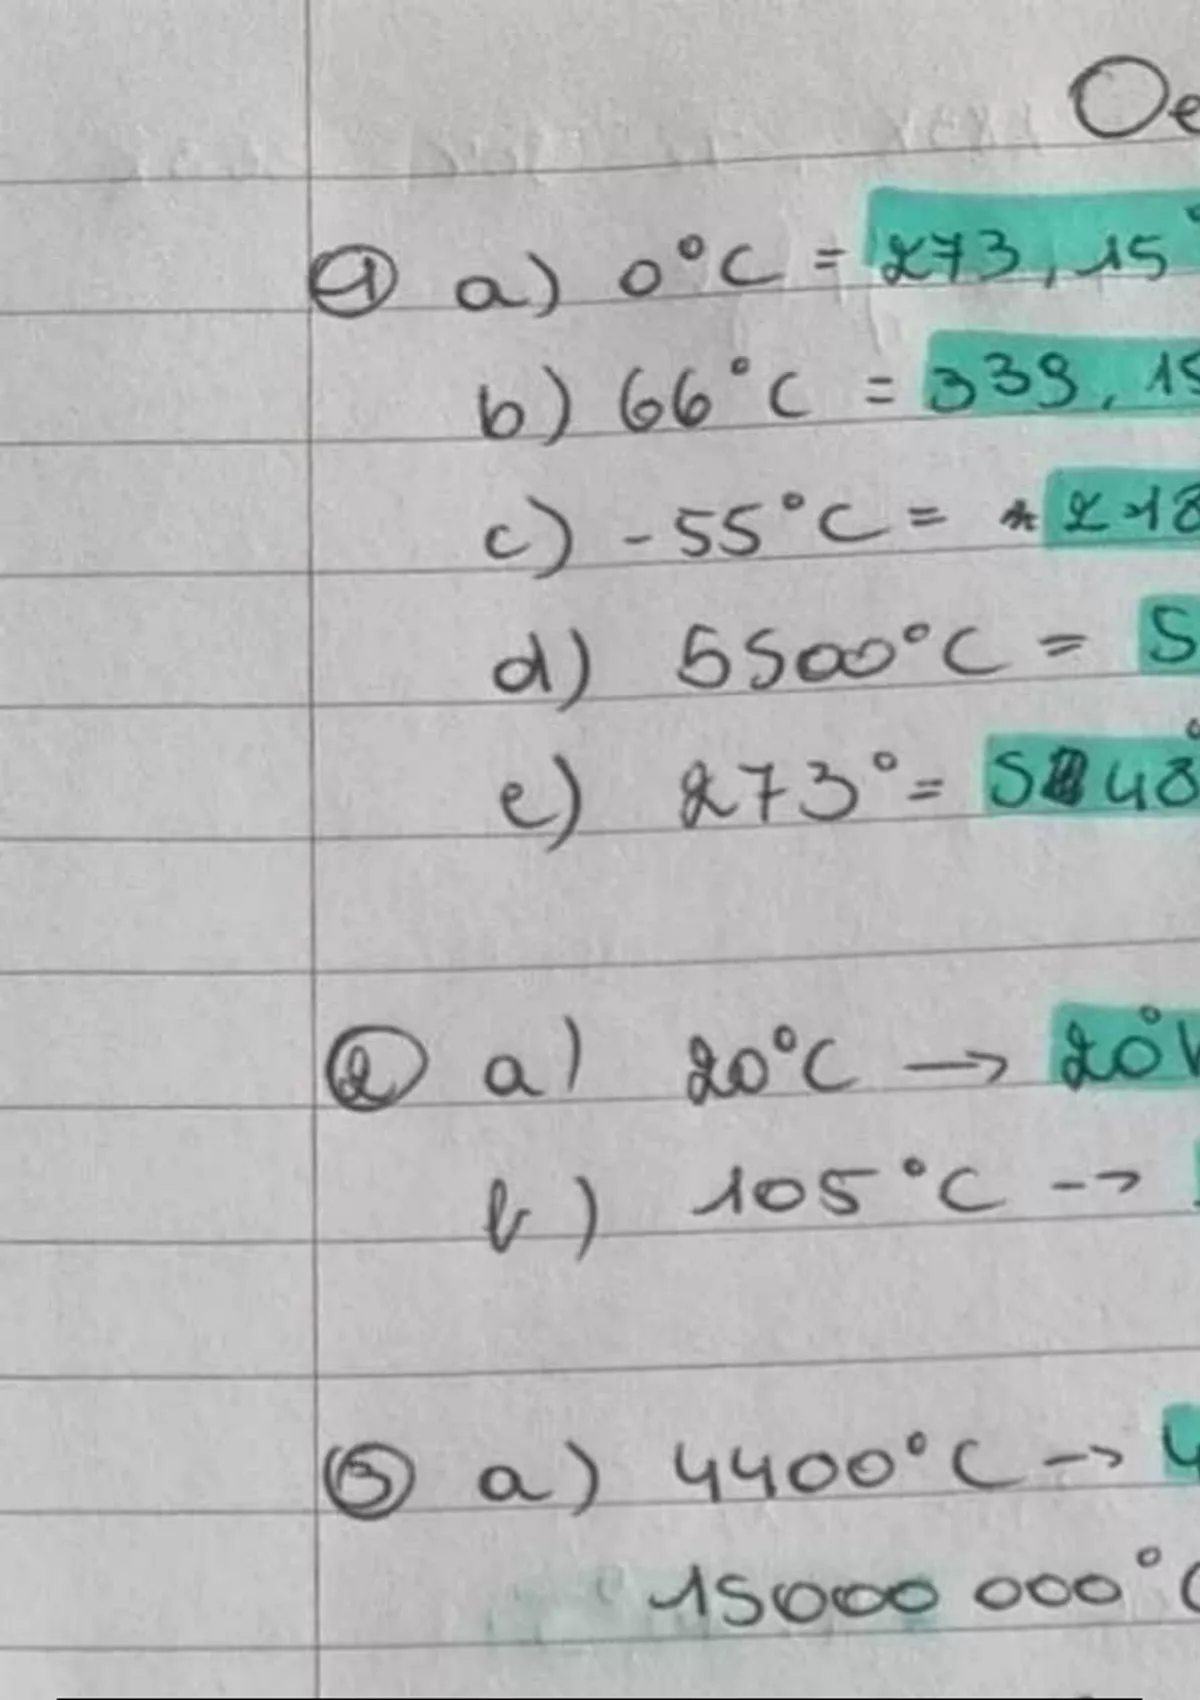 Oe
1 a) 0°C = 273,15°
b) 66°C = 339,15
c) -55°C = 218
d) 5500°C = 5
e) 273° = 5 48°
2 a) 20°C → 20°K
b) 105°C →
3 a) 4400°C → 4
15000 000°C